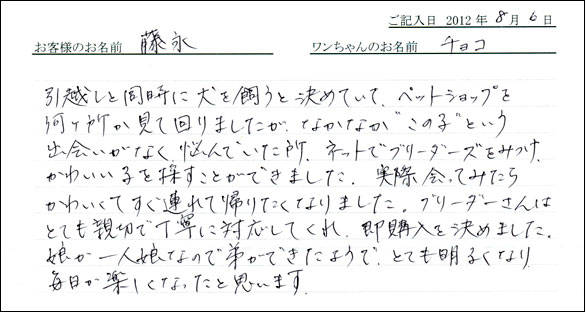 ご記入日 2012年 8月 6日
お客様のお名前 藤永 ワンちゃんのお名前 チョコ
引越しと同時に犬を飼うと決めていて、ペットショップを
何ヶ所か見て回りましたが、なかなか"この子"という
出会いがなく悩んでいた所、ネットでブリーダーズをみつけ、
かわいい子を探すことができました。実際会ってみたら
かわいくてすぐ連れて帰りたくなりました。ブリーダーさんは
とても親切で丁寧に対応してくれ、即購入を決めました。
娘が一人娘なので弟ができたようで、とても明るくなり
毎日が楽しくなったと思います。